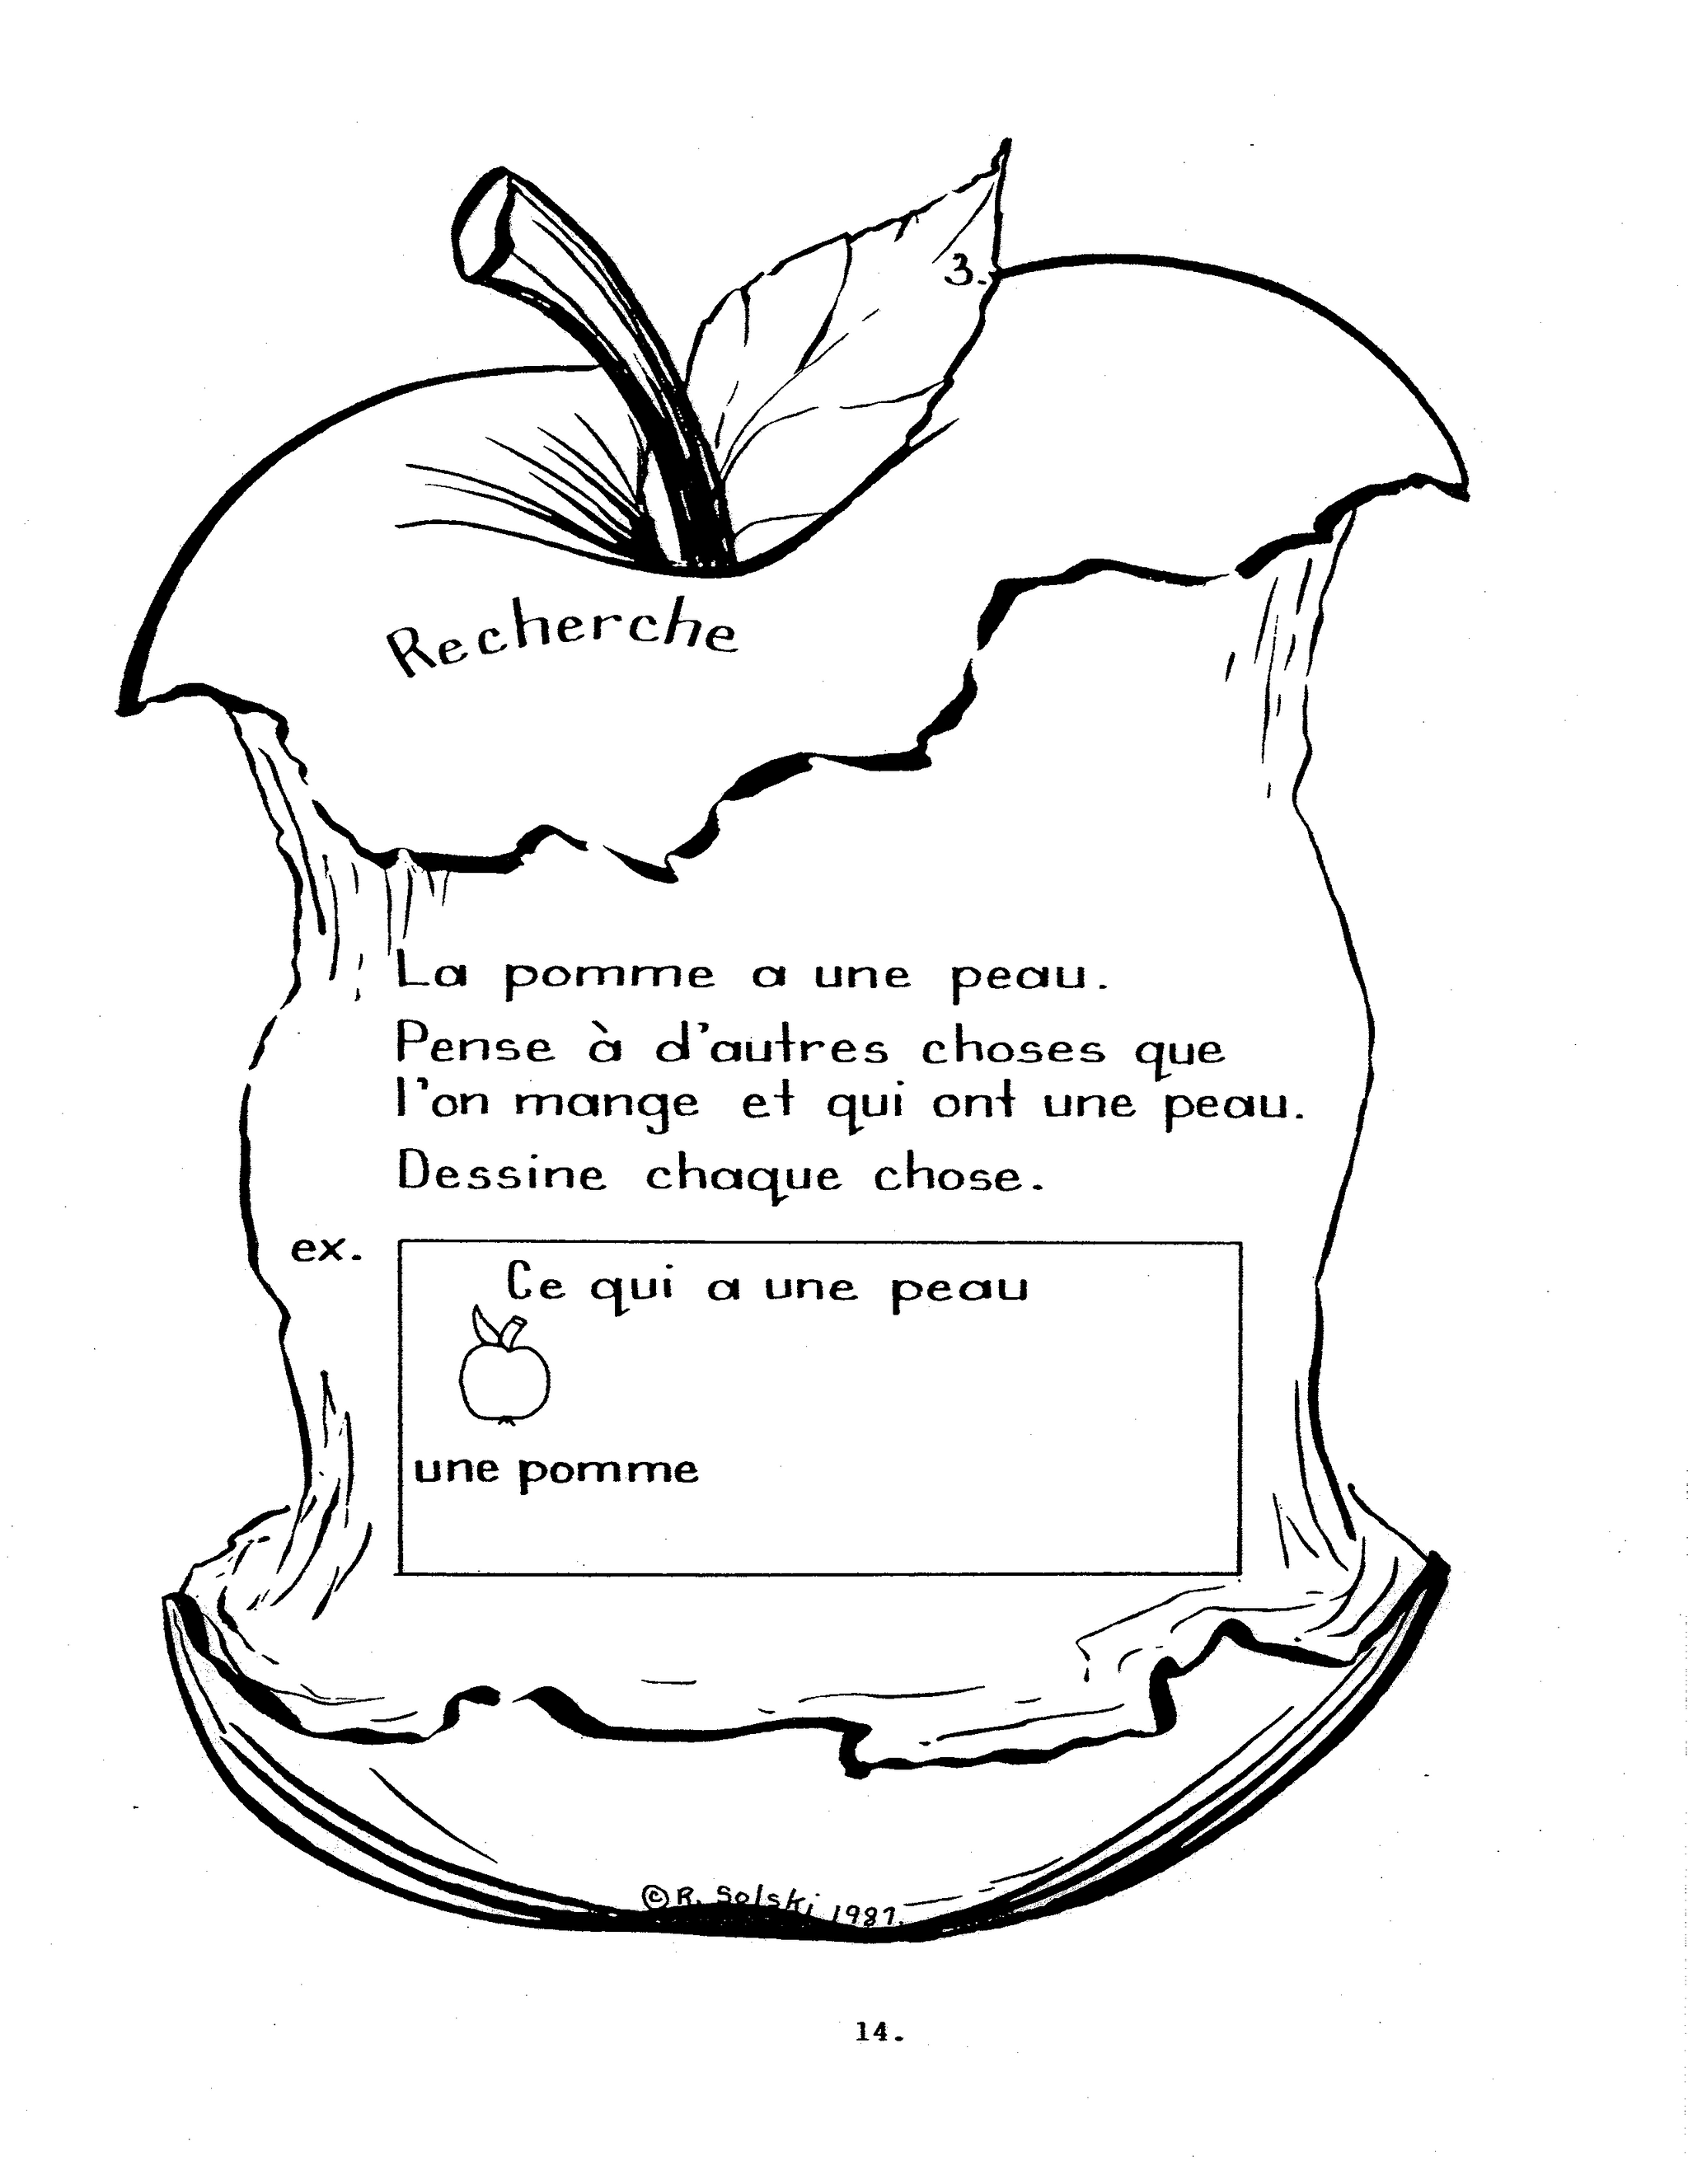 3.
Recherche
La pomme a une peau.
Pense à d'autres choses que
l'on mange et qui ont une peau.
Dessine chaque chose.
ex.
Ce qui a une peau
une pomme
© R. Solski 1987.
14.